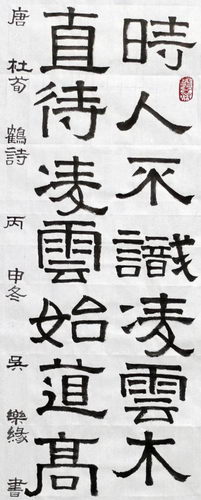 時人不識凌雲木
直待凌雲始道高
唐 杜荀鶴詩 丙申冬 吳樂緣書